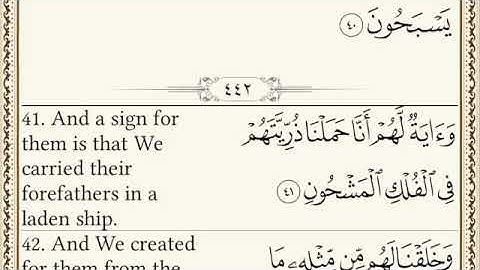 يَسْبَحُونَ ٤٠
٤٤٢
41. And a sign for
them is that We
carried their
forefathers in a
laden ship.
وَءَايَةٌ لَّهُمْ أَنَّا حَمَلْنَا ذُرِّيَّتَهُمْ
فِي الْفُلْكِ الْمَشْحُونِ ٤١
42. And We created
for them from the
وَخَلَقْنَا لَهُم مِّن مِّثْلِهِۦ مَا